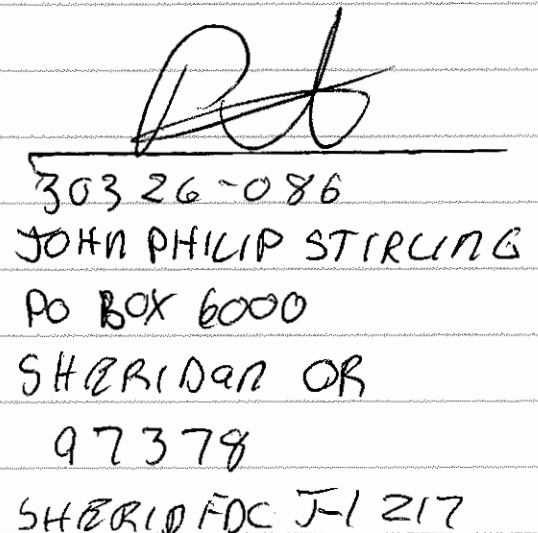 30326-086
JOHN PHILIP STIRLING
PO BOX 6000
SHERIDAN OR
97378
SHERID FDC J-1 217